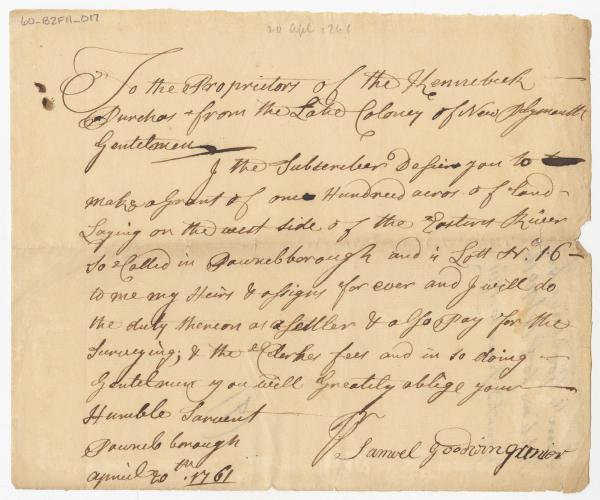 60-B2F11-017
20 Apl 1761
To the Proprietors of the Kennebeck
Purchas from the Late Coloney of New Plymouth
Gentelmen
I the Subscriber Desier you to
make a Grant of one Hundred acros of Land
Laying on the west side of the Eastern River
So Called in Pownelborough and is Lott No. 16
to me my Heirs & assigns for ever and I will do
the duty thereon as a settler & also Pay for the
Surveying; & the Clerkes fees and in so doing
Gentelmen you will Greatily oblige your
Humble Sarvent
Samuel Goodwin Junior
Pownelborough
april 20th. 1761